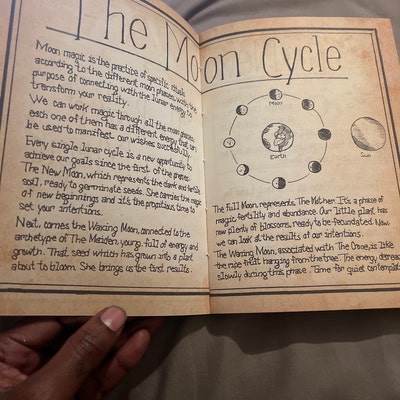 The Moon Cycle
Moon magic is the practice of specific rituals
according to the different moon phases, with the
purpose of connecting with the lunar energy to
transform your reality.
We can work magic through all the moon phases,
each one of them has a different energy that can
be used to manifest our wishes successfully.
Every single lunar cycle is a new opportunity to
achieve our goals since the first of the phases
The New Moon, which represents the dark and fertile
soil, ready to germinate seeds. She carries the magic
of new beginnings and it's the propitious time to
set your intentions.
Next, comes the Waxing Moon, connected to the
archetype of The Maiden, young, full of energy and
growth. That seed which has grown into a plant
about to bloom. She brings us the first results.
Moon
Earth
Sun
The Full Moon, represents, The Mother. It's a phase of
magic, fertility and abundance. Our little plant has
now plenty of blossoms, ready to be fecundated. Now,
we can look at the results of our intentions.
The Waning Moon, associated with The Crone, is like
the ripe fruit hanging from the tree. The energy decreas
slowly during this phase. Time for quiet contemplat